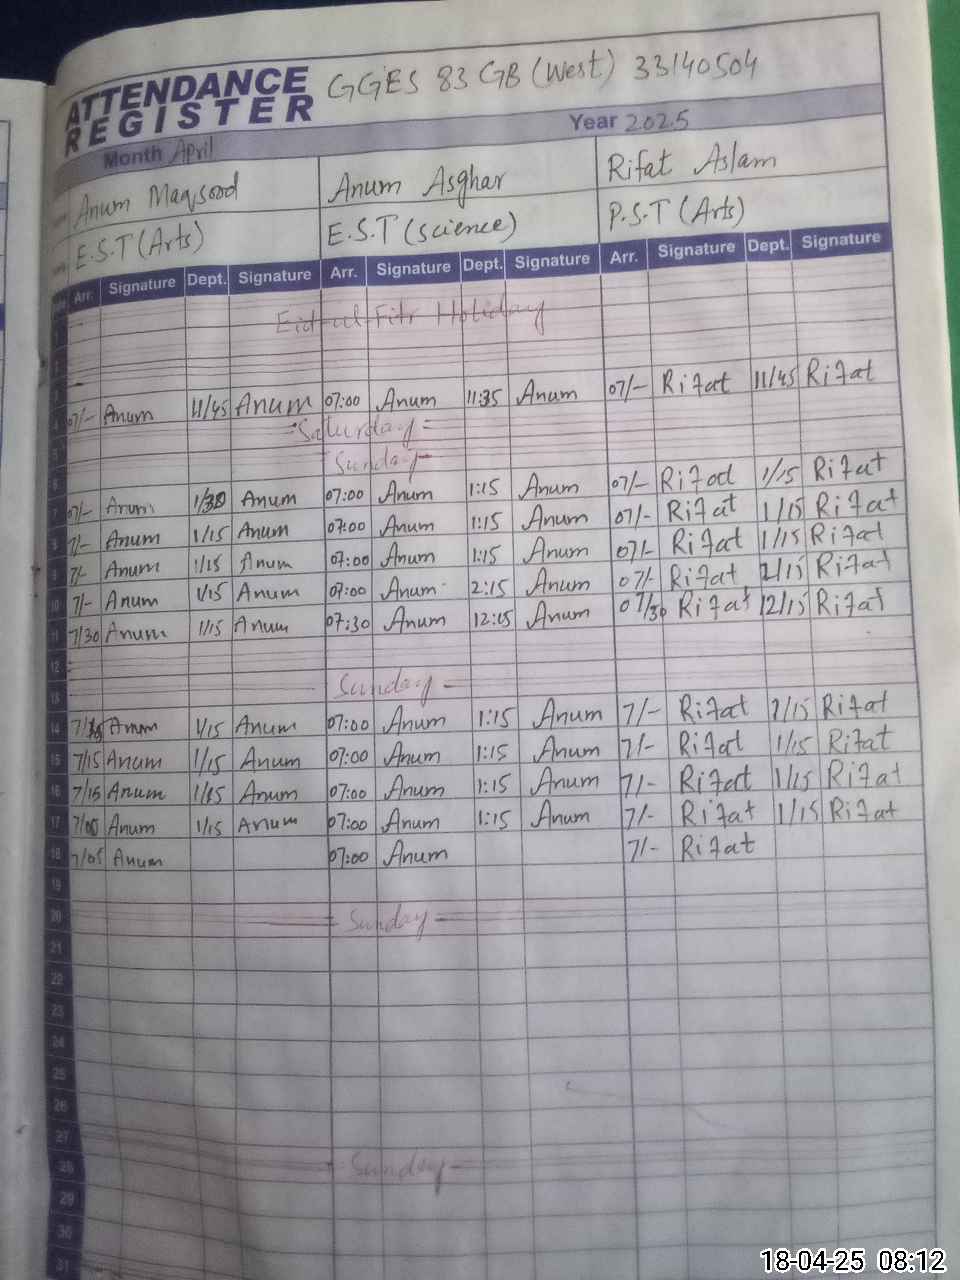 ATTENDANCE REGISTER GGES 83 GB (West) 33140504
Month April Year 2025
Anum Maqsood Anum Asghar Rifat Aslam
E.S.T (Arts) E.S.T (science) P.S.T (Arts)
Arr. Signature Dept. Signature Arr. Signature Dept. Signature Arr. Signature Dept. Signature
1 Eid-ul-Fitr Holiday
2
3
4 07/- Anum 11/45 Anum 07:00 Anum 11:35 Anum 07/- Rifat 11/45 Rifat
5 Saturday
6 Sunday
7 07/- Anum 1/30 Anum 07:00 Anum 1:15 Anum 07/- Rifat 1/15 Rifat
8 7/- Anum 1/15 Anum 07:00 Anum 1:15 Anum 07/- Rifat 1/15 Rifat
9 7/- Anum 1/15 Anum 07:00 Anum 1:15 Anum 07/- Rifat 1/15 Rifat
10 7/- Anum 1/15 Anum 07:00 Anum 2:15 Anum 07/- Rifat 2/15 Rifat
11 7/30 Anum 1/15 Anum 07:30 Anum 12:15 Anum 07/30 Rifat 12/15 Rifat
12
13 Sunday
14 Anum 1/15 Anum 07:00 Anum 1:15 Anum 7/- Rifat 1/15 Rifat
15 7/15 Anum 1/15 Anum 07:00 Anum 1:15 Anum 7/- Rifat 1/15 Rifat
16 7/15 Anum 1/15 Anum 07:00 Anum 1:15 Anum 7/- Rifat 1/15 Rifat
17 7/00 Anum 1/15 Anum 07:00 Anum 1:15 Anum 7/- Rifat 1/15 Rifat
18 7/05 Anum 07:00 Anum 7/- Rifat
19
20 Sunday
21
22
23
24
25
26
27
28 Sunday
29
30
31
18-04-25 08:12